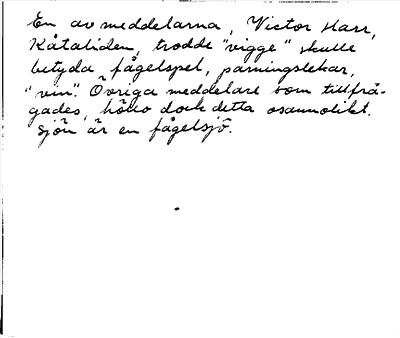 En av meddelarna, Victor Harr,
Kåtaliden, trodde "vigge" skulle
betyda fågelspel, parningslekar,
"vin". Övriga meddelare som tillfrå-
gades, höllo dock detta osannolikt.
Sjön är en fågelsjö.